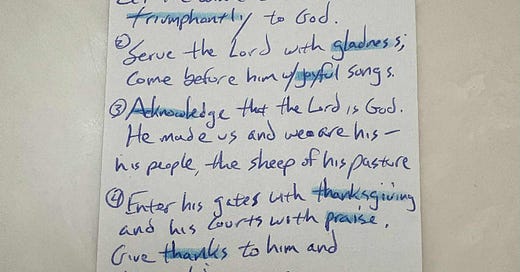 triumphantly to God.
② Serve the Lord with gladness;
come before him w/joyful songs.
③ Acknowledge that the Lord is God.
He made us and we are his –
his people, the sheep of his pasture
④ Enter his gates with thanksgiving
and his courts with praise.
Give thanks to him and